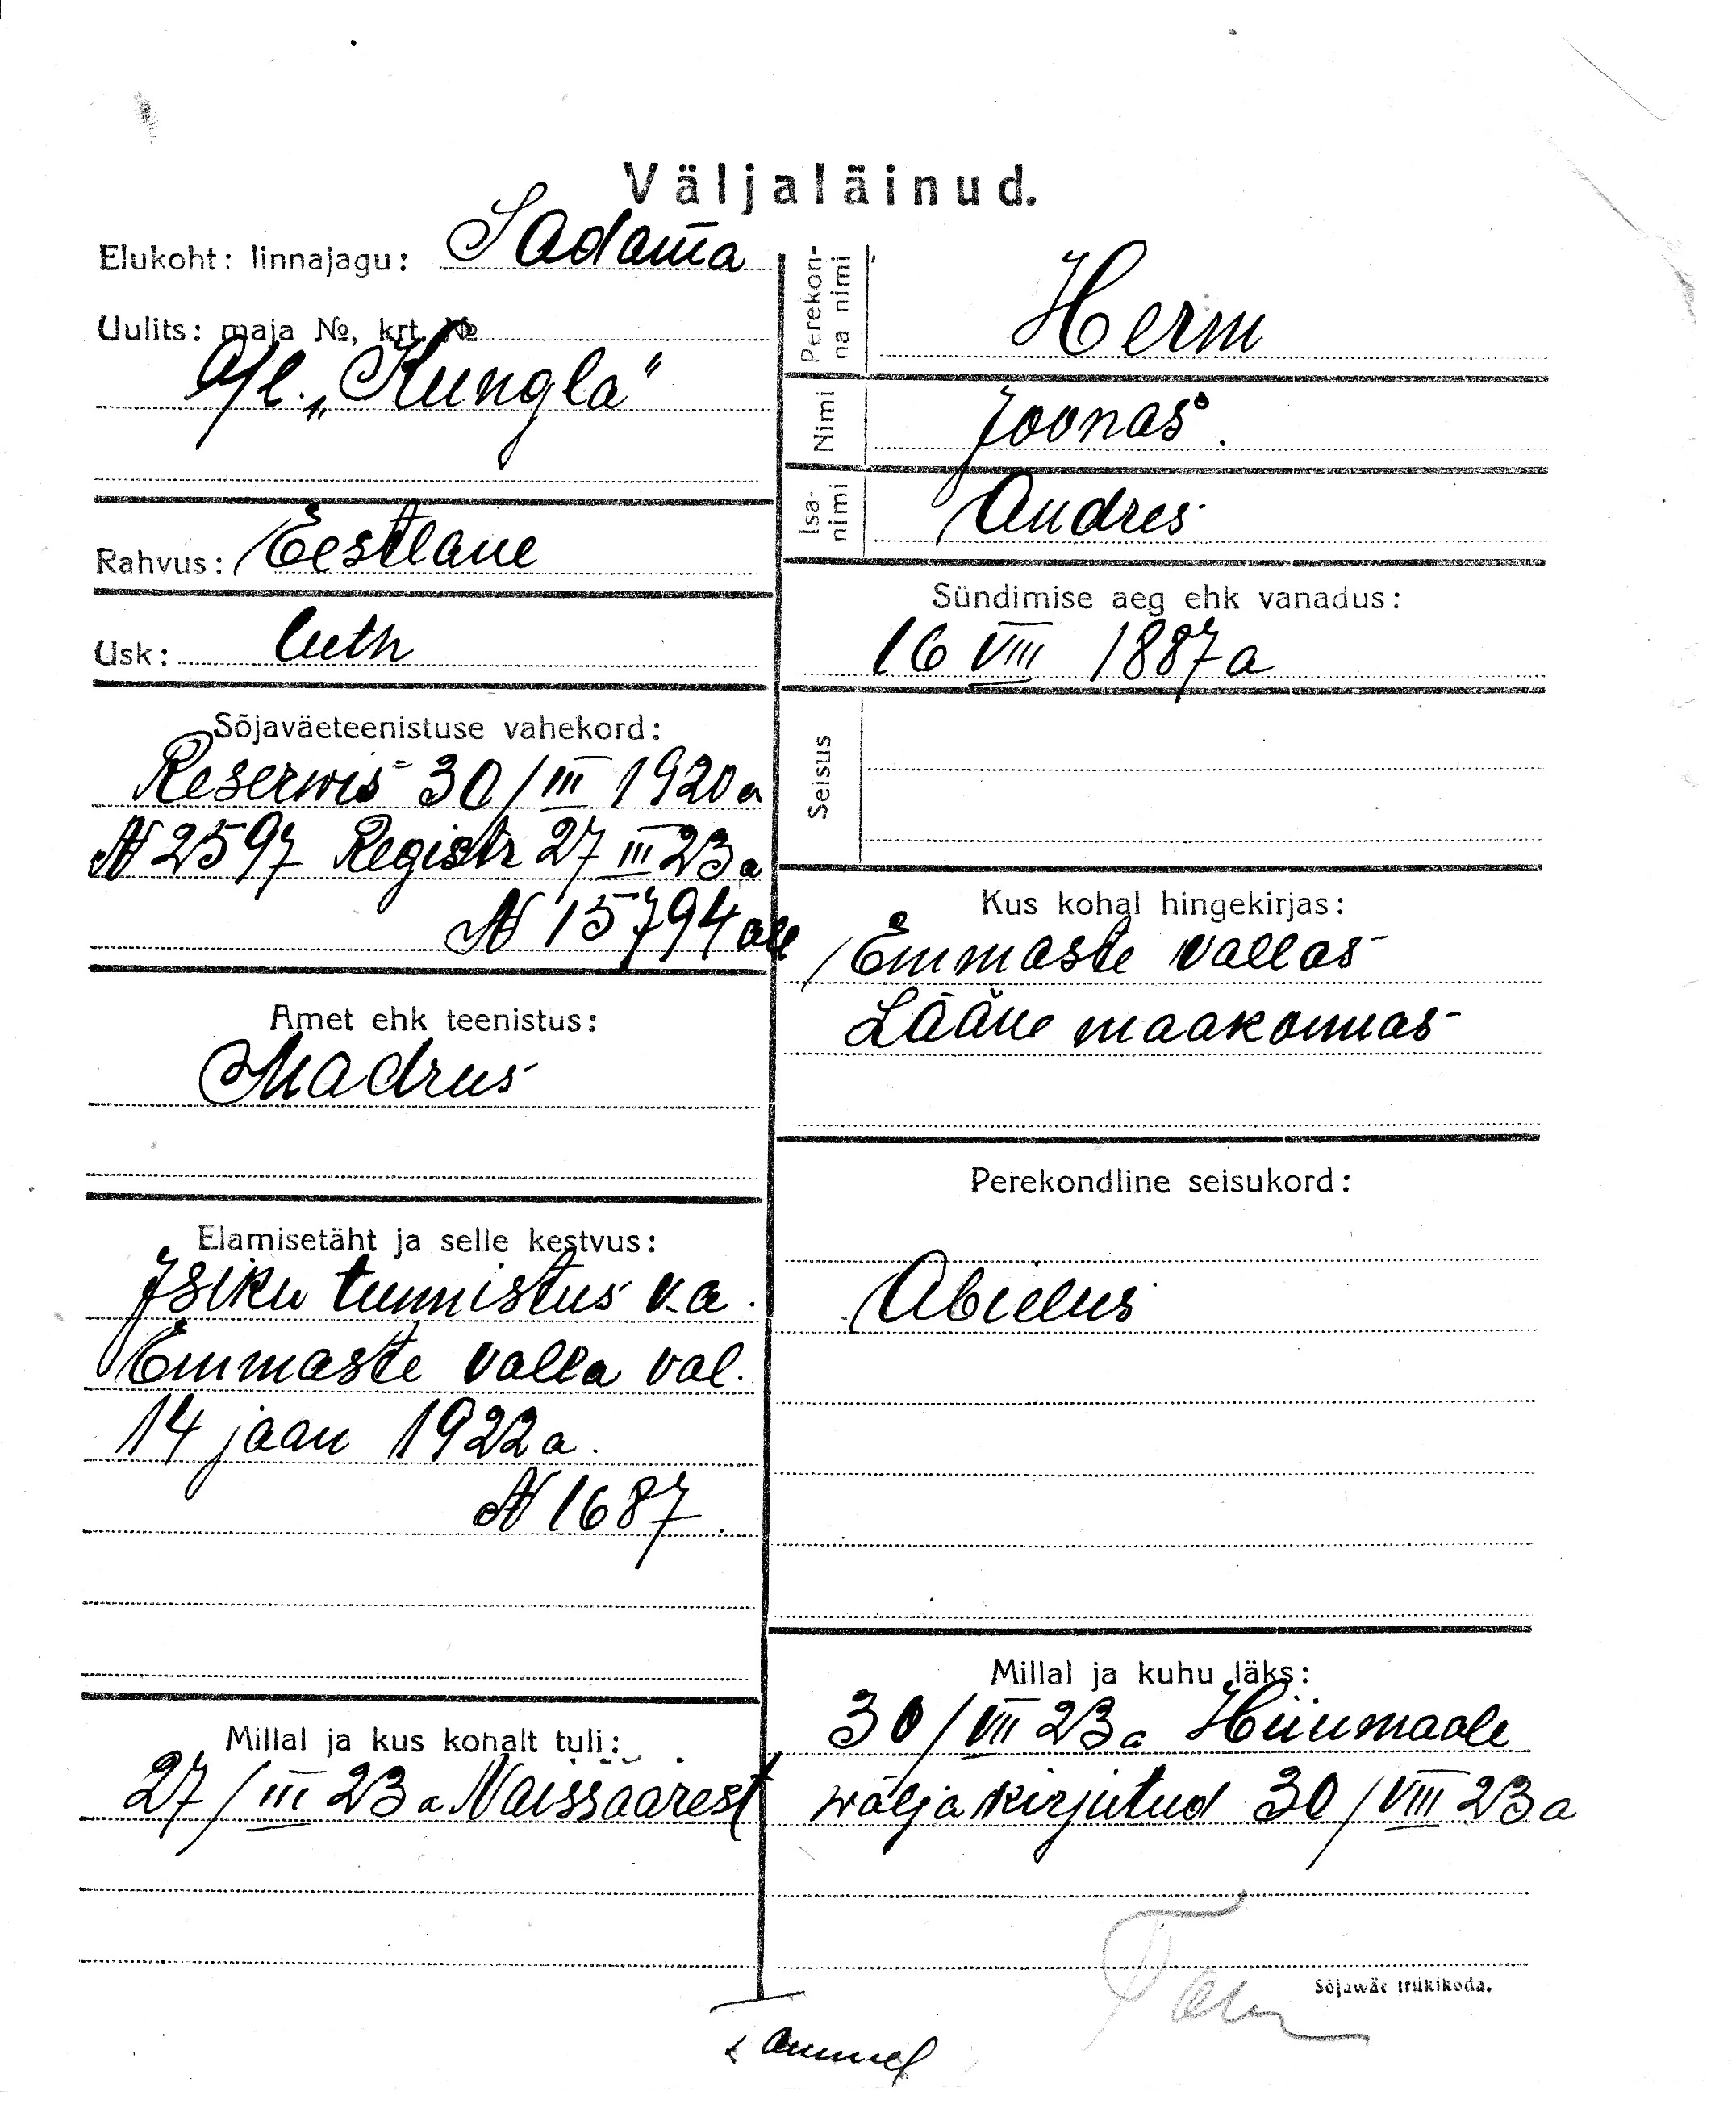 Väljaläinud.
Elukoht: linnajagu: Sadama
Uulits: maja №, krt. №
a/l. „Kungla“
Rahvus: Eestlane
Usk: luth
Sõjaväeteenistuse vahekord:
Reserwis 30/III 1920 a
N 2597 Registr 27 III 23 a
N 15794 all
Amet ehk teenistus:
Madrus
Elamisetäht ja selle kestvus:
Isiku tunnistus v.a.
Emmaste valla val.
14 jaan 1922 a.
N 1687.
Millal ja kus kohalt tuli:
27/III 23 a Naissaarest
Perekon-
na nimi
Herm
Nimi
Joonas.
Isa-
nimi
Andres
Sündimise aeg ehk vanadus:
16 VIII 1887 a
Seisus
Kus kohal hingekirjas:
Emmaste vallas
Lääne maakonnas
Perekondline seisukord:
Abielus
Millal ja kuhu läks:
30/VII 23 a Hiiumaale
wälja kirjutud 30/VIII 23 a
Sõjawäe trükikoda.